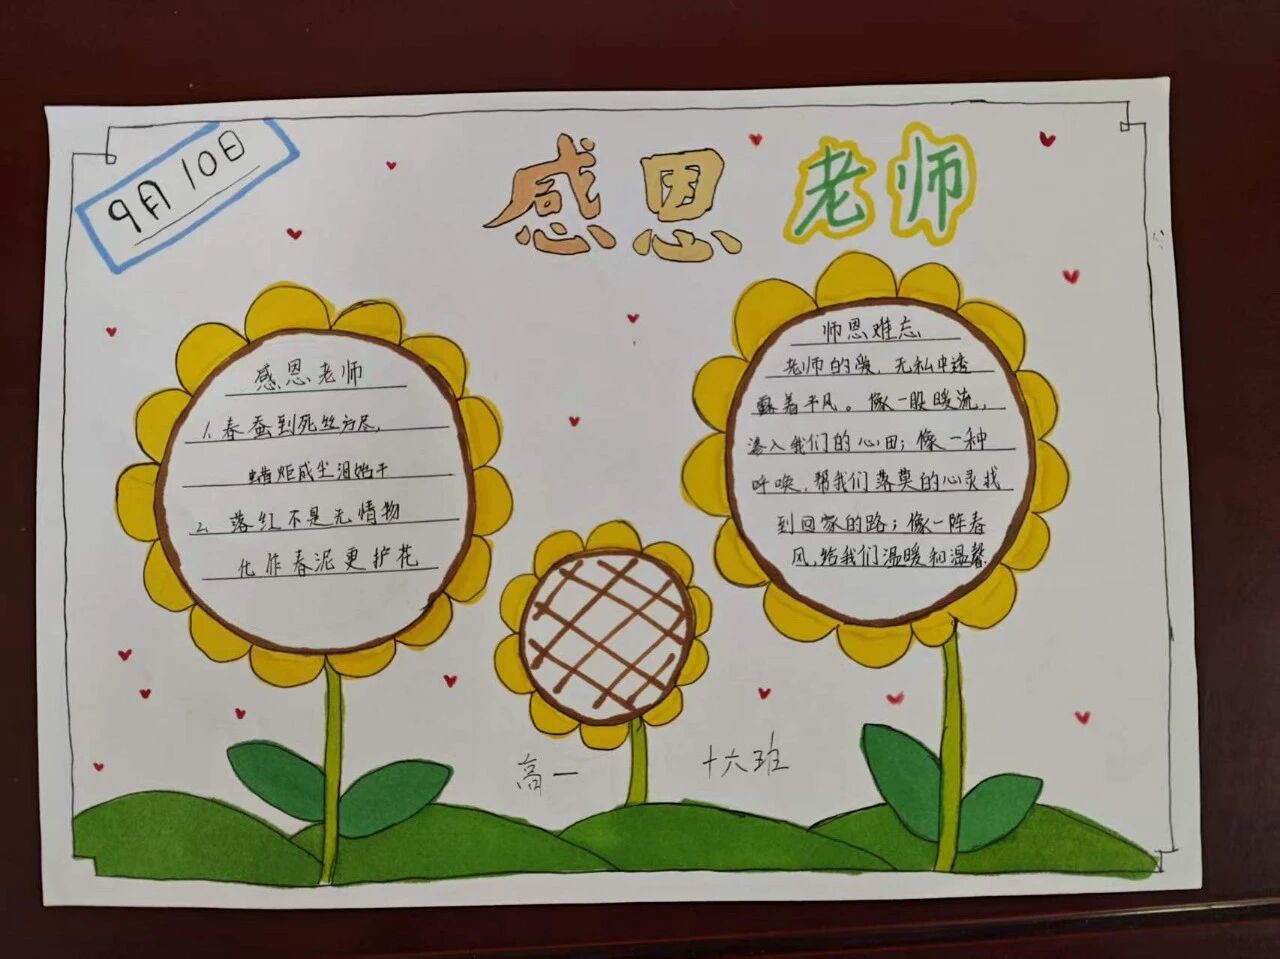 9月10日
感恩老师
感恩老师
1. 春蚕到死丝方尽,
蜡炬成尘泪始干
2. 落红不是无情物
化作春泥更护花
师恩难忘
老师的爱,无私中透
露着平凡。像一股暖流,
渗入我们的心田;像一种
呼唤,帮我们落莫的心灵找
到回家的路;像一阵春
风,给我们温暖和温馨
高一 十六班